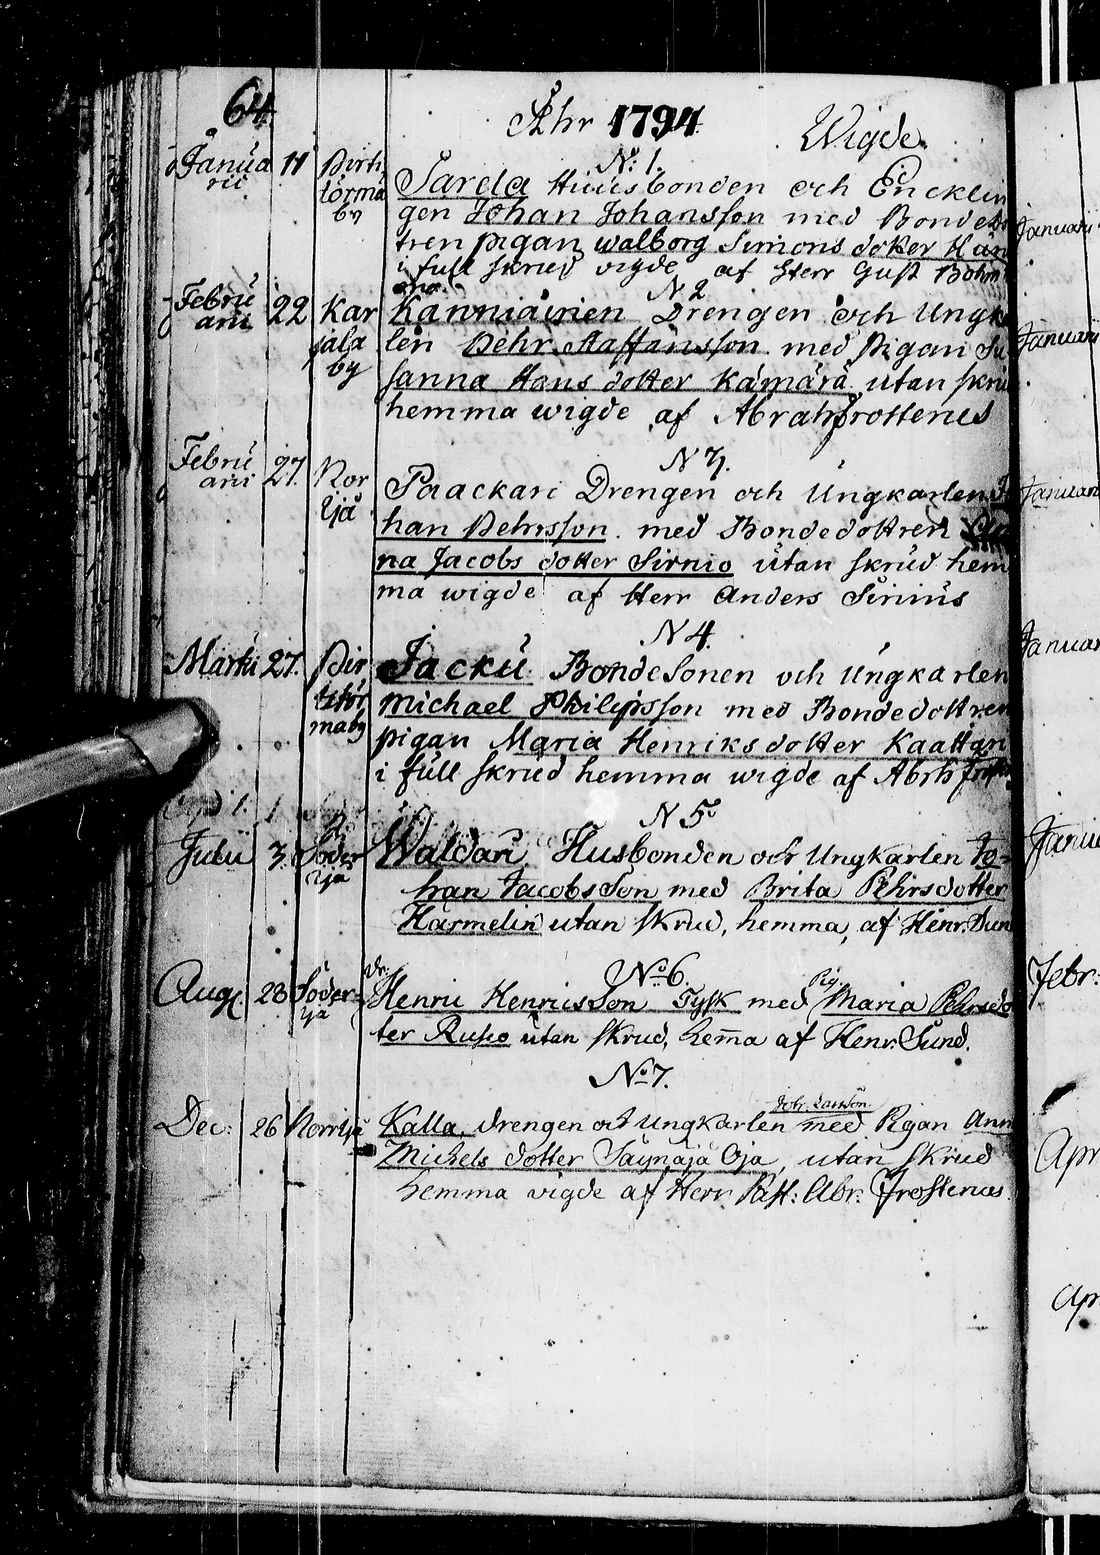 64
Åhr 1794 Wigde
N: 1.
Januarii 11 Pirttörmä by Sarela Huusbonden och Encklin
gen Johan Johansson med Bonde
tren pigan walborg Simons doter
i full skrud vigde af Herr Gust Bohm
N 2
Februarii 22 Karjala by Kanniainen Drengen och Ungka
len Pehr Staffansson med Pigan Su
sanna Hans dotter Kämärä utan skru
hemma wigde af Abrah Frosterus
N 3.
Februarii 27. Norrijä Paackari Drengen och Ungkarlen Jo
han Pehrsson med Bondedottren
na Jacobs dotter Sirnio utan skrud hem
ma wigde af Herr Anders Sirnius
N 4.
Martii 27. Pirttörmäby Jacku BondeSonen och Ungkarlen
Michael Philipsson med Bondedottren
pigan Maria Henriksdotter Kaattari
i full skrud hemma wigde af Abrh
N 5
Julii 3. Söderijä Waldari Husbonden och Ungkarlen Jo-
han JacobsSon med Brita Pehrsdotter
Härmelin utan skrud, hemma, af Henr. Sun
No 6.
Aug. 28 Söderijä dr: Henric HenricsSon Tysk med Pig. Maria Pehrsdo
ter Rusko utan skrud, hem̄a af Henr. Sund.
No 7.
Dec: 26 Norrijä Kalla, drengen och Ungkarlen med Pigan Ann
Michels dotter Säynäjä Oja, utan skrud
hemma vigde af Herr Past: Abr: Frosterus.
Januari
Januari
Januari
Januar
Janu
Febr:
Apr
Apr